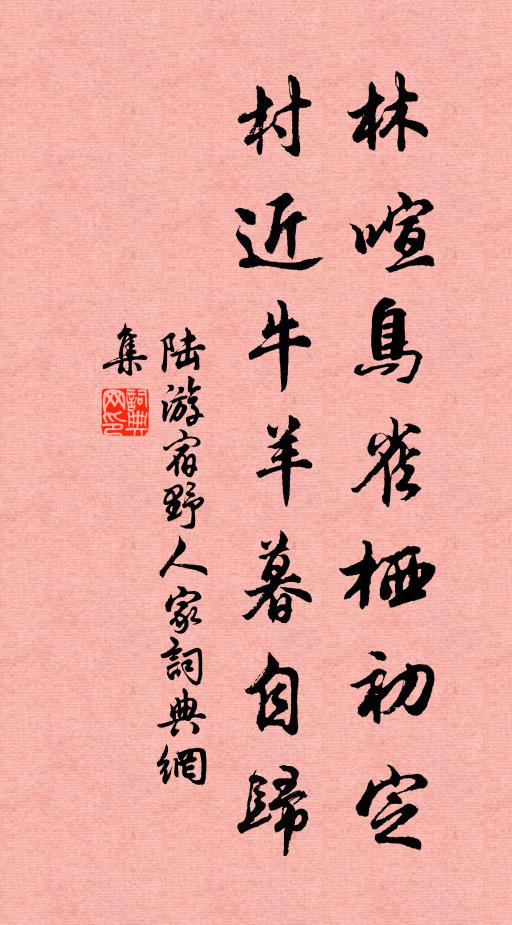 林喧鳥雀栖初定
村近牛羊暮自歸
陆游宿野人家詞典網
集
詞典網印